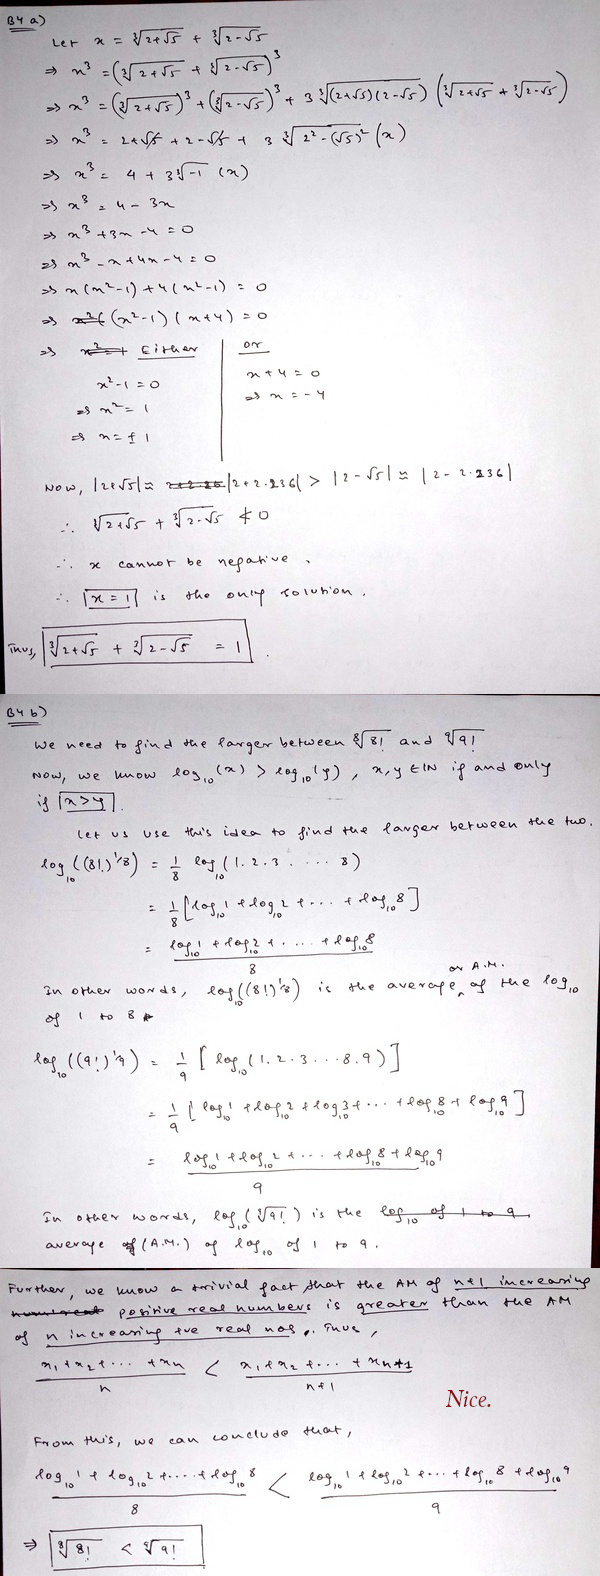 B4 a)
Let x = ∛(2+√5) + ∛(2-√5)
⇒ x³ = (∛(2+√5) + ∛(2-√5))³
⇒ x³ = (∛(2+√5))³ + (∛(2-√5))³ + 3 ∛((2+√5)(2-√5)) (∛(2+√5) + ∛(2-√5))
⇒ x³ = 2+√5 + 2-√5 + 3 ∛(2²-(√5)²) (x)
⇒ x³ = 4 + 3∛-1 (x)
⇒ x³ = 4 - 3x
⇒ x³ + 3x - 4 = 0
⇒ x³ - x + 4x - 4 = 0
⇒ x(x²-1) + 4(x²-1) = 0
⇒ (x²-1)(x+4) = 0
⇒ Either or
x²-1 = 0 x+4 = 0
⇒ x² = 1 ⇒ x = -4
⇒ x = ±1
Now, |2+√5| ≈ |2+2.236| > |2-√5| ≈ |2-2.236|
∴ ∛(2+√5) + ∛(2-√5) ≮ 0
∴ x cannot be negative.
∴ x = 1 is the only solution.
Thus, ∛(2+√5) + ∛(2-√5) = 1.
B4 b)
We need to find the larger between ⁸√8! and ⁹√9!
Now, we know log₁₀(x) > log₁₀(y), x,y ∈ IN if and only
if x>y.
Let us use this idea to find the larger between the two.
log₁₀((8!)^1/8) = 1/8 log₁₀(1.2.3. ... 8)
= 1/8 [log₁₀1 + log₁₀2 + ... + log₁₀8]
= (log₁₀1 + log₁₀2 + .... + log₁₀8)/8
In other words, log₁₀((8!)^1/8) is the average or A.M. of the log₁₀
of 1 to 8
log₁₀((9!)^1/9) = 1/9 [log₁₀(1.2.3...8.9)]
= 1/9 [log₁₀1 + log₁₀2 + log₁₀3 + ... + log₁₀8 + log₁₀9]
= (log₁₀1 + log₁₀2 + ... + log₁₀8 + log₁₀9)/9
In other words, log₁₀(⁹√9!) is the log₁₀ of 1 to 9
average (A.M.) of log₁₀ of 1 to 9.
Further, we know a trivial fact that the AM of n+1 increasing
positive real numbers is greater than the AM
of n increasing +ve real nos. Thus,
(x₁+x₂+... +xₙ)/n < (x₁+x₂+... +xₙ₊₁)/(n+1)
Nice.
From this, we can conclude that,
(log₁₀1 + log₁₀2 + .... + log₁₀8)/8 < (log₁₀1 + log₁₀2 + ... + log₁₀8 + log₁₀9)/9
⇒ ⁸√8! < ⁹√9!